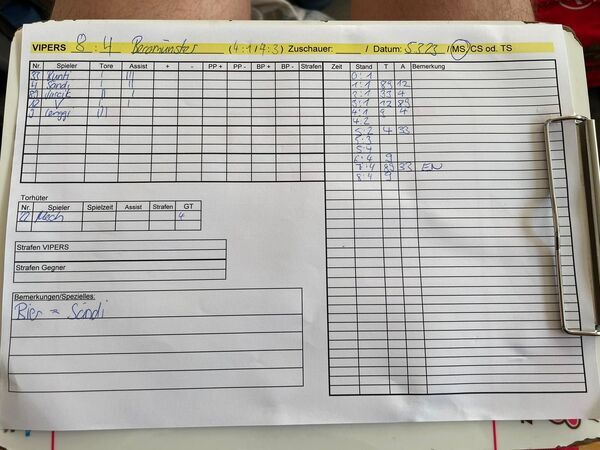 VIPERS 8:4 Beromünster (4:1/4:3) Zuschauer: / Datum: 5323 / MS/CS od. TS
Nr. Spieler Tore Assist + - PP + PP - BP + BP - Strafen Zeit Stand T A Bemerkung
33 Kunti I III 0:1
4 Sändi I II 1:1 89 12
89 II I 2:1 33 4
12 V I I 3:1 12 89
9 III 4:1 9 4
4:2
5:2 4 33
5:3
5:4
6:4 9
7:4 89 33 EN
8:4 9
Torhüter
Nr. Spieler Spielzeit Assist Strafen GT
22 4
Strafen VIPERS
Strafen Gegner
Bemerkungen/Spezielles:
Bier = Sändi